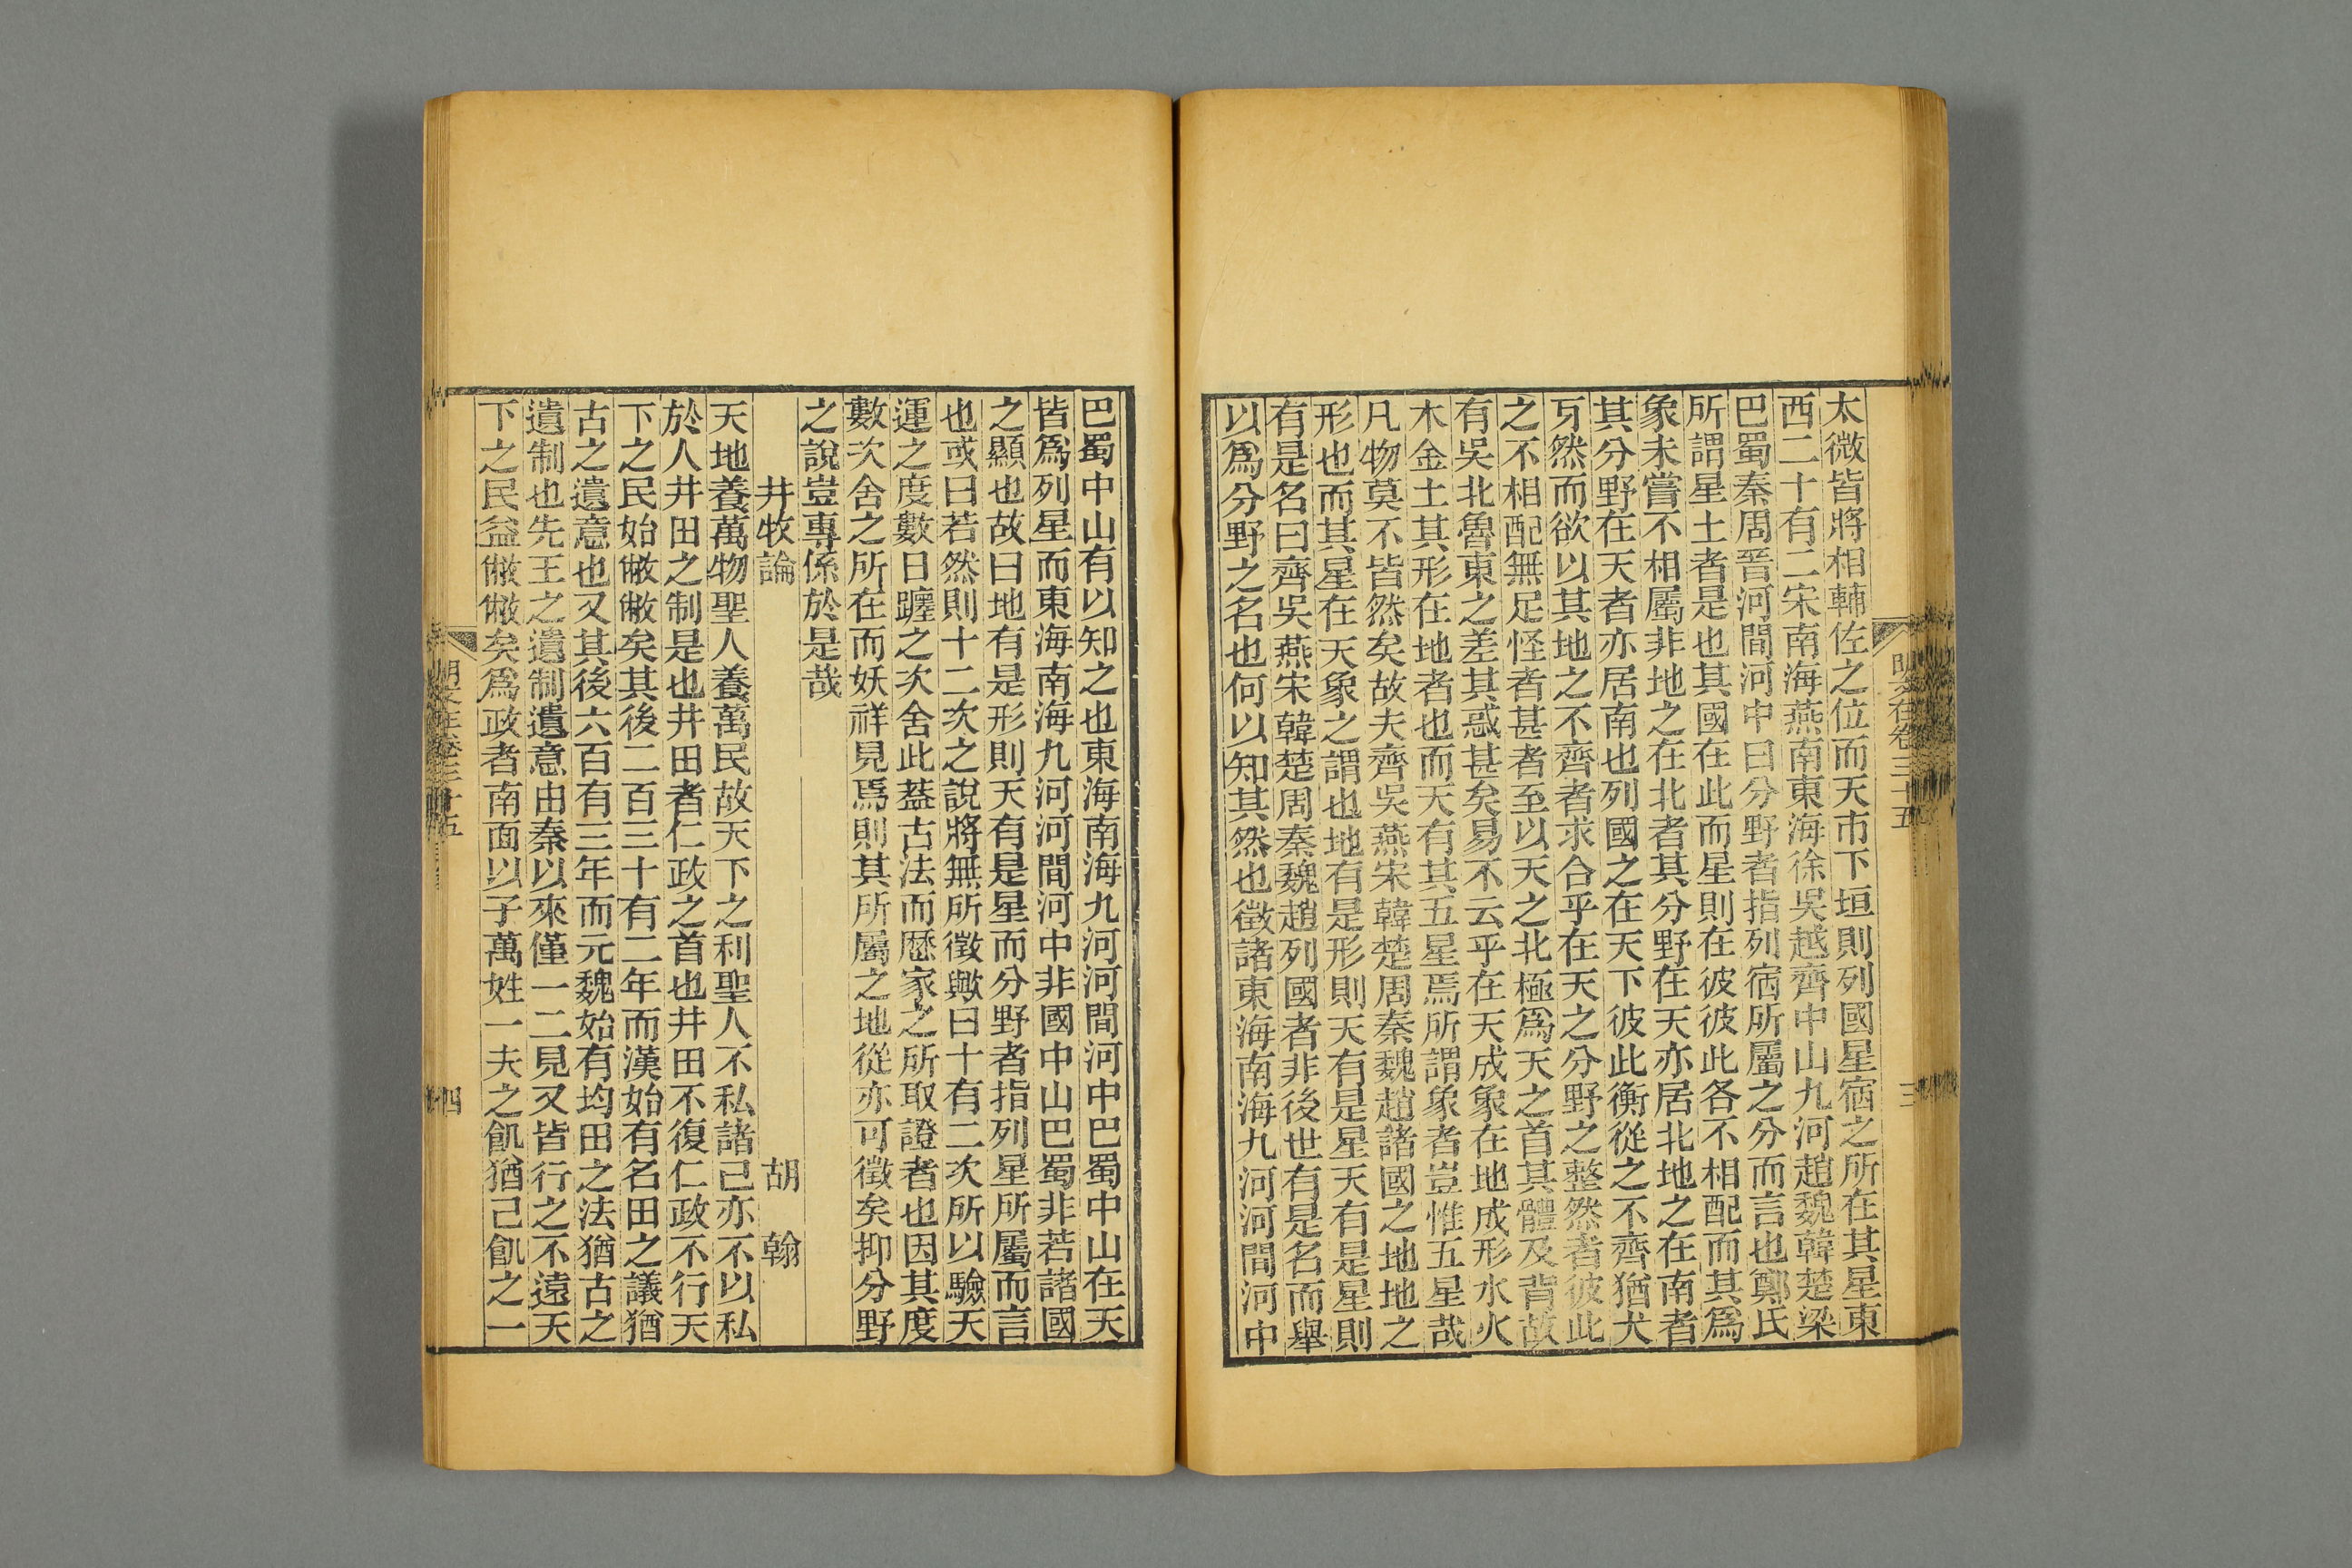 明文在卷三十五
三
太微皆將相輔佐之位而天市下垣則列國星宿之所在其星東
西二十有二宋南海燕南東海徐吳越齊中山九河趙魏韓楚梁
巴蜀秦周晉河間河中曰分野者指列宿所屬之分而言也鄭氏
所謂星土者是也其國在此而星則在彼彼此各不相配而其爲
象未嘗不相屬非地之在北者其分野在天亦居北地之在南者
其分野在天者亦居南也列國之在天下彼此衡從之不齊猶犬
牙然而欲以其地之不齊者求合乎在天之分野之整然者彼此
之不相配無足怪者甚者至以天之北極爲天之首其體及背故
有吳北魯東之差其惑甚矣易不云乎在天成象在地成形水火
木金土其形在地者也而天有其五星焉所謂象者豈惟五星哉
凡物莫不皆然矣故夫齊吳燕宋韓楚周秦魏趙諸國之地地之
形也而其星在天象之謂也地有是形則天有是星天有是星則
有是名曰齊吳燕宋韓楚周秦魏趙列國者非後世有是名而舉
以爲分野之名也何以知其然也徵諸東海南海九河河間河中
巴蜀中山有以知之也東海南海九河河間河中巴蜀中山在天
皆爲列星而東海南海九河河間河中非國中山巴蜀非若諸國
之顯也故曰地有是形則天有是星而分野者指列星所屬而言
也或曰若然則十二次之說將無所徵歟曰十有二次所以驗天
運之度數日躔之次舍此葢古法而歷家之所取證者也因其度
數次舍之所在而妖祥見焉則其所屬之地從亦可徵矣抑分野
之說豈專係於是哉
井牧論　胡翰
天地養萬物聖人養萬民故天下之利聖人不私諸己亦不以私
於人井田之制是也井田者仁政之首也井田不復仁政不行天
下之民始敝敝矣其後二百三十有二年而漢始有名田之議猶
古之遺意也又其後六百有三年而元魏始有均田之法猶古之
遺制也先王之遺制遺意由秦以來僅一二見又皆行之不遠天
下之民益敝敝矣爲政者南面以子萬姓一夫之飢猶己飢之一
明文在卷三十五
四